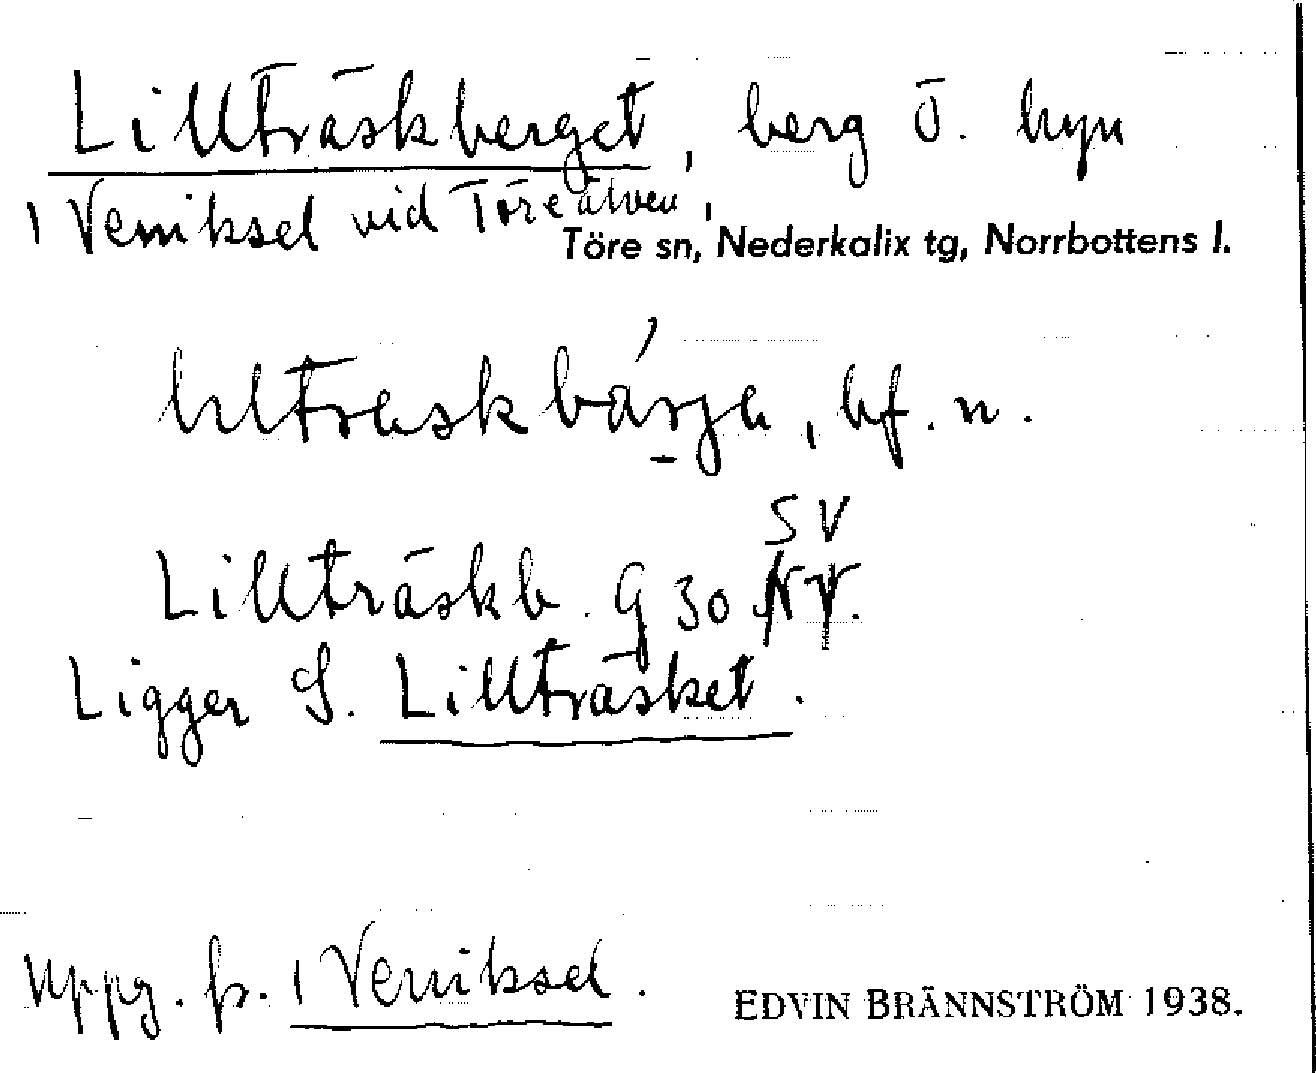 Lillträskberget, berg Ö. byn
1 Verniksel vid Töreälven,
Töre sn, Nederkalix tg, Norrbottens l.
bf. n.
SV
Lillträskb. G 30 NV.
Ligger S. Lillträsket.
Uppg. fr. 1 Verniksel.
EDVIN BRÄNNSTRÖM 1938.